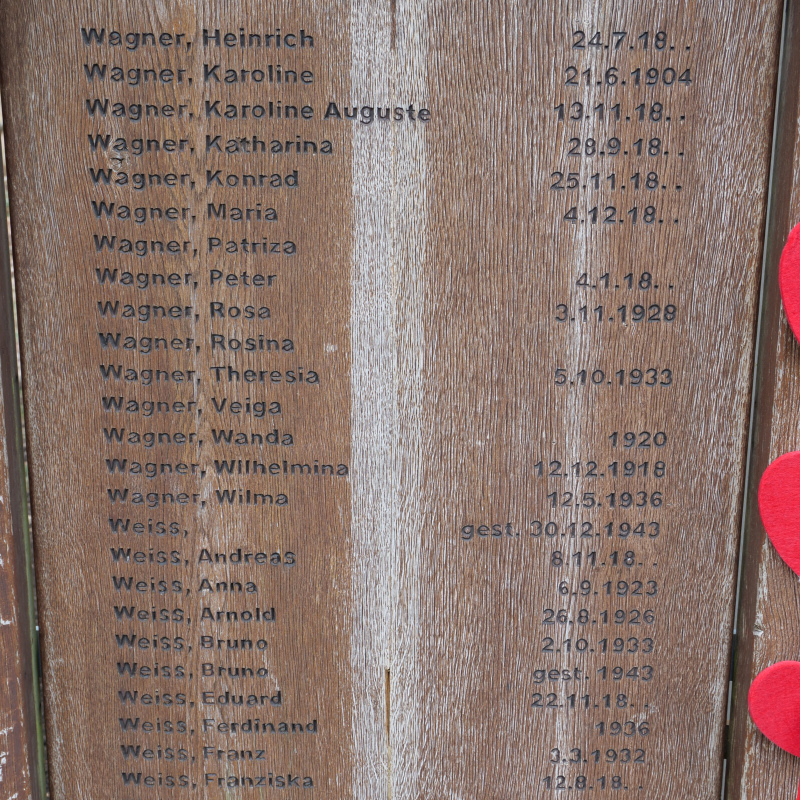 Wagner, Heinrich 24.7.18. .
Wagner, Karoline 21.6.1904
Wagner, Karoline Auguste 13.11.18. .
Wagner, Katharina 28.9.18. .
Wagner, Konrad 25.11.18. .
Wagner, Maria 4.12.18. .
Wagner, Patriza
Wagner, Peter 4.1.18. .
Wagner, Rosa 3.11.1928
Wagner, Rosina
Wagner, Theresia 5.10.1933
Wagner, Veiga
Wagner, Wanda 1920
Wagner, Wilhelmina 12.12.1918
Wagner, Wilma 12.5.1936
Weiss, gest. 30.12.1943
Weiss, Andreas 8.11.18. .
Weiss, Anna 6.9.1923
Weiss, Arnold 26.8.1926
Weiss, Bruno 2.10.1933
Weiss, Bruno gest. 1943
Weiss, Eduard 22.11.18. .
Weiss, Ferdinand 1936
Weiss, Franz 3.3.1932
Weiss, Franziska 12.8.18. .